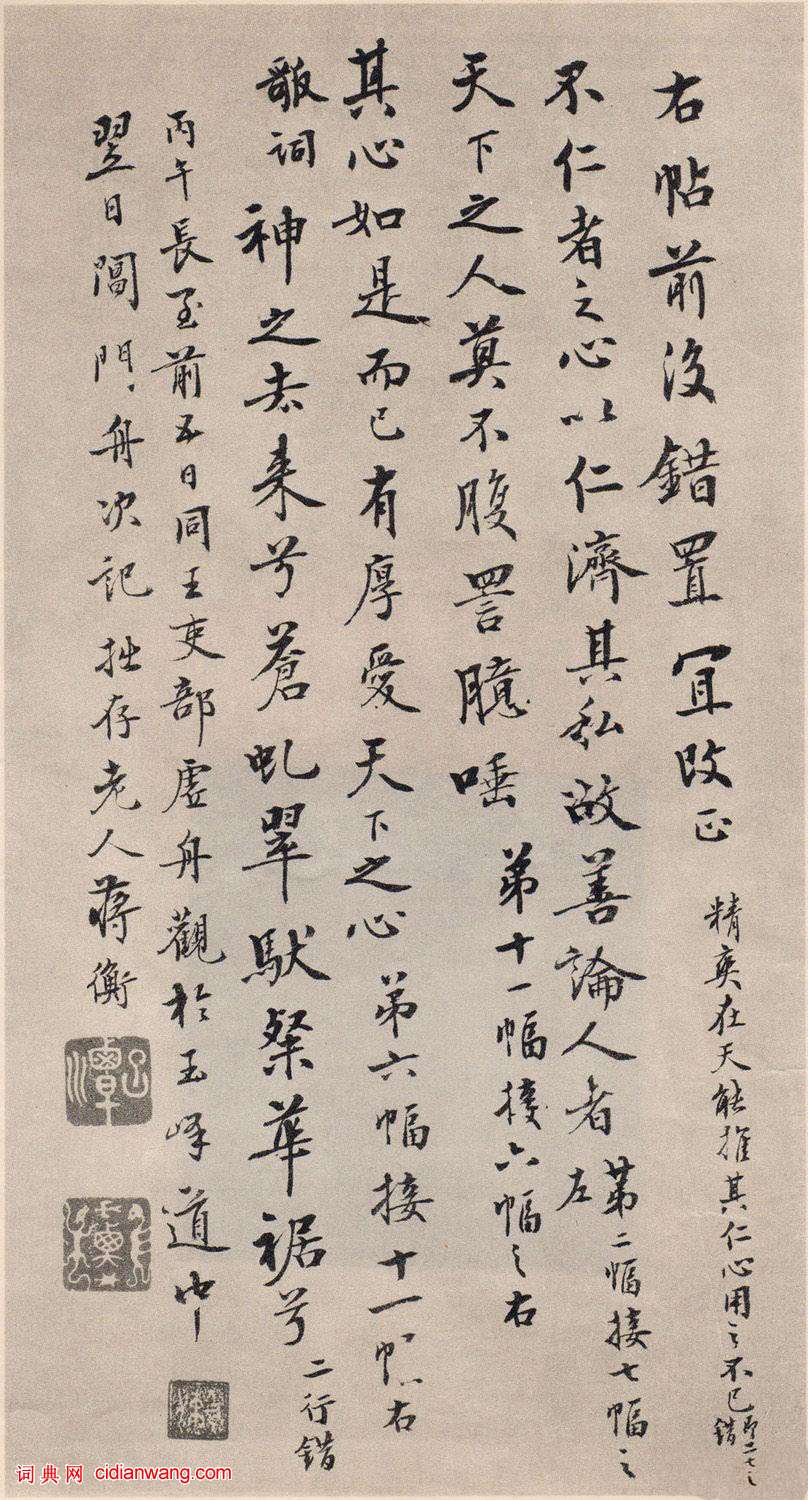 右帖前後錯置宜改正 精爽在天能推其仁心用之不已 錯
不仁者之心以仁濟其私故善論人者 第二幅接七幅之左
天下之人莫不腹詈臆唾 第十一幅接六幅之右
其心如是而已有厚愛天下之心 第六幅接十一幅右
歌詞神之去來兮蒼虬翠駃粲華裾兮 二行錯
丙午長至前五日同王吏部虛舟觀於玉峰道中
翌日閶門舟次記拙存老人蔣衡
词典网 cidianwang.com